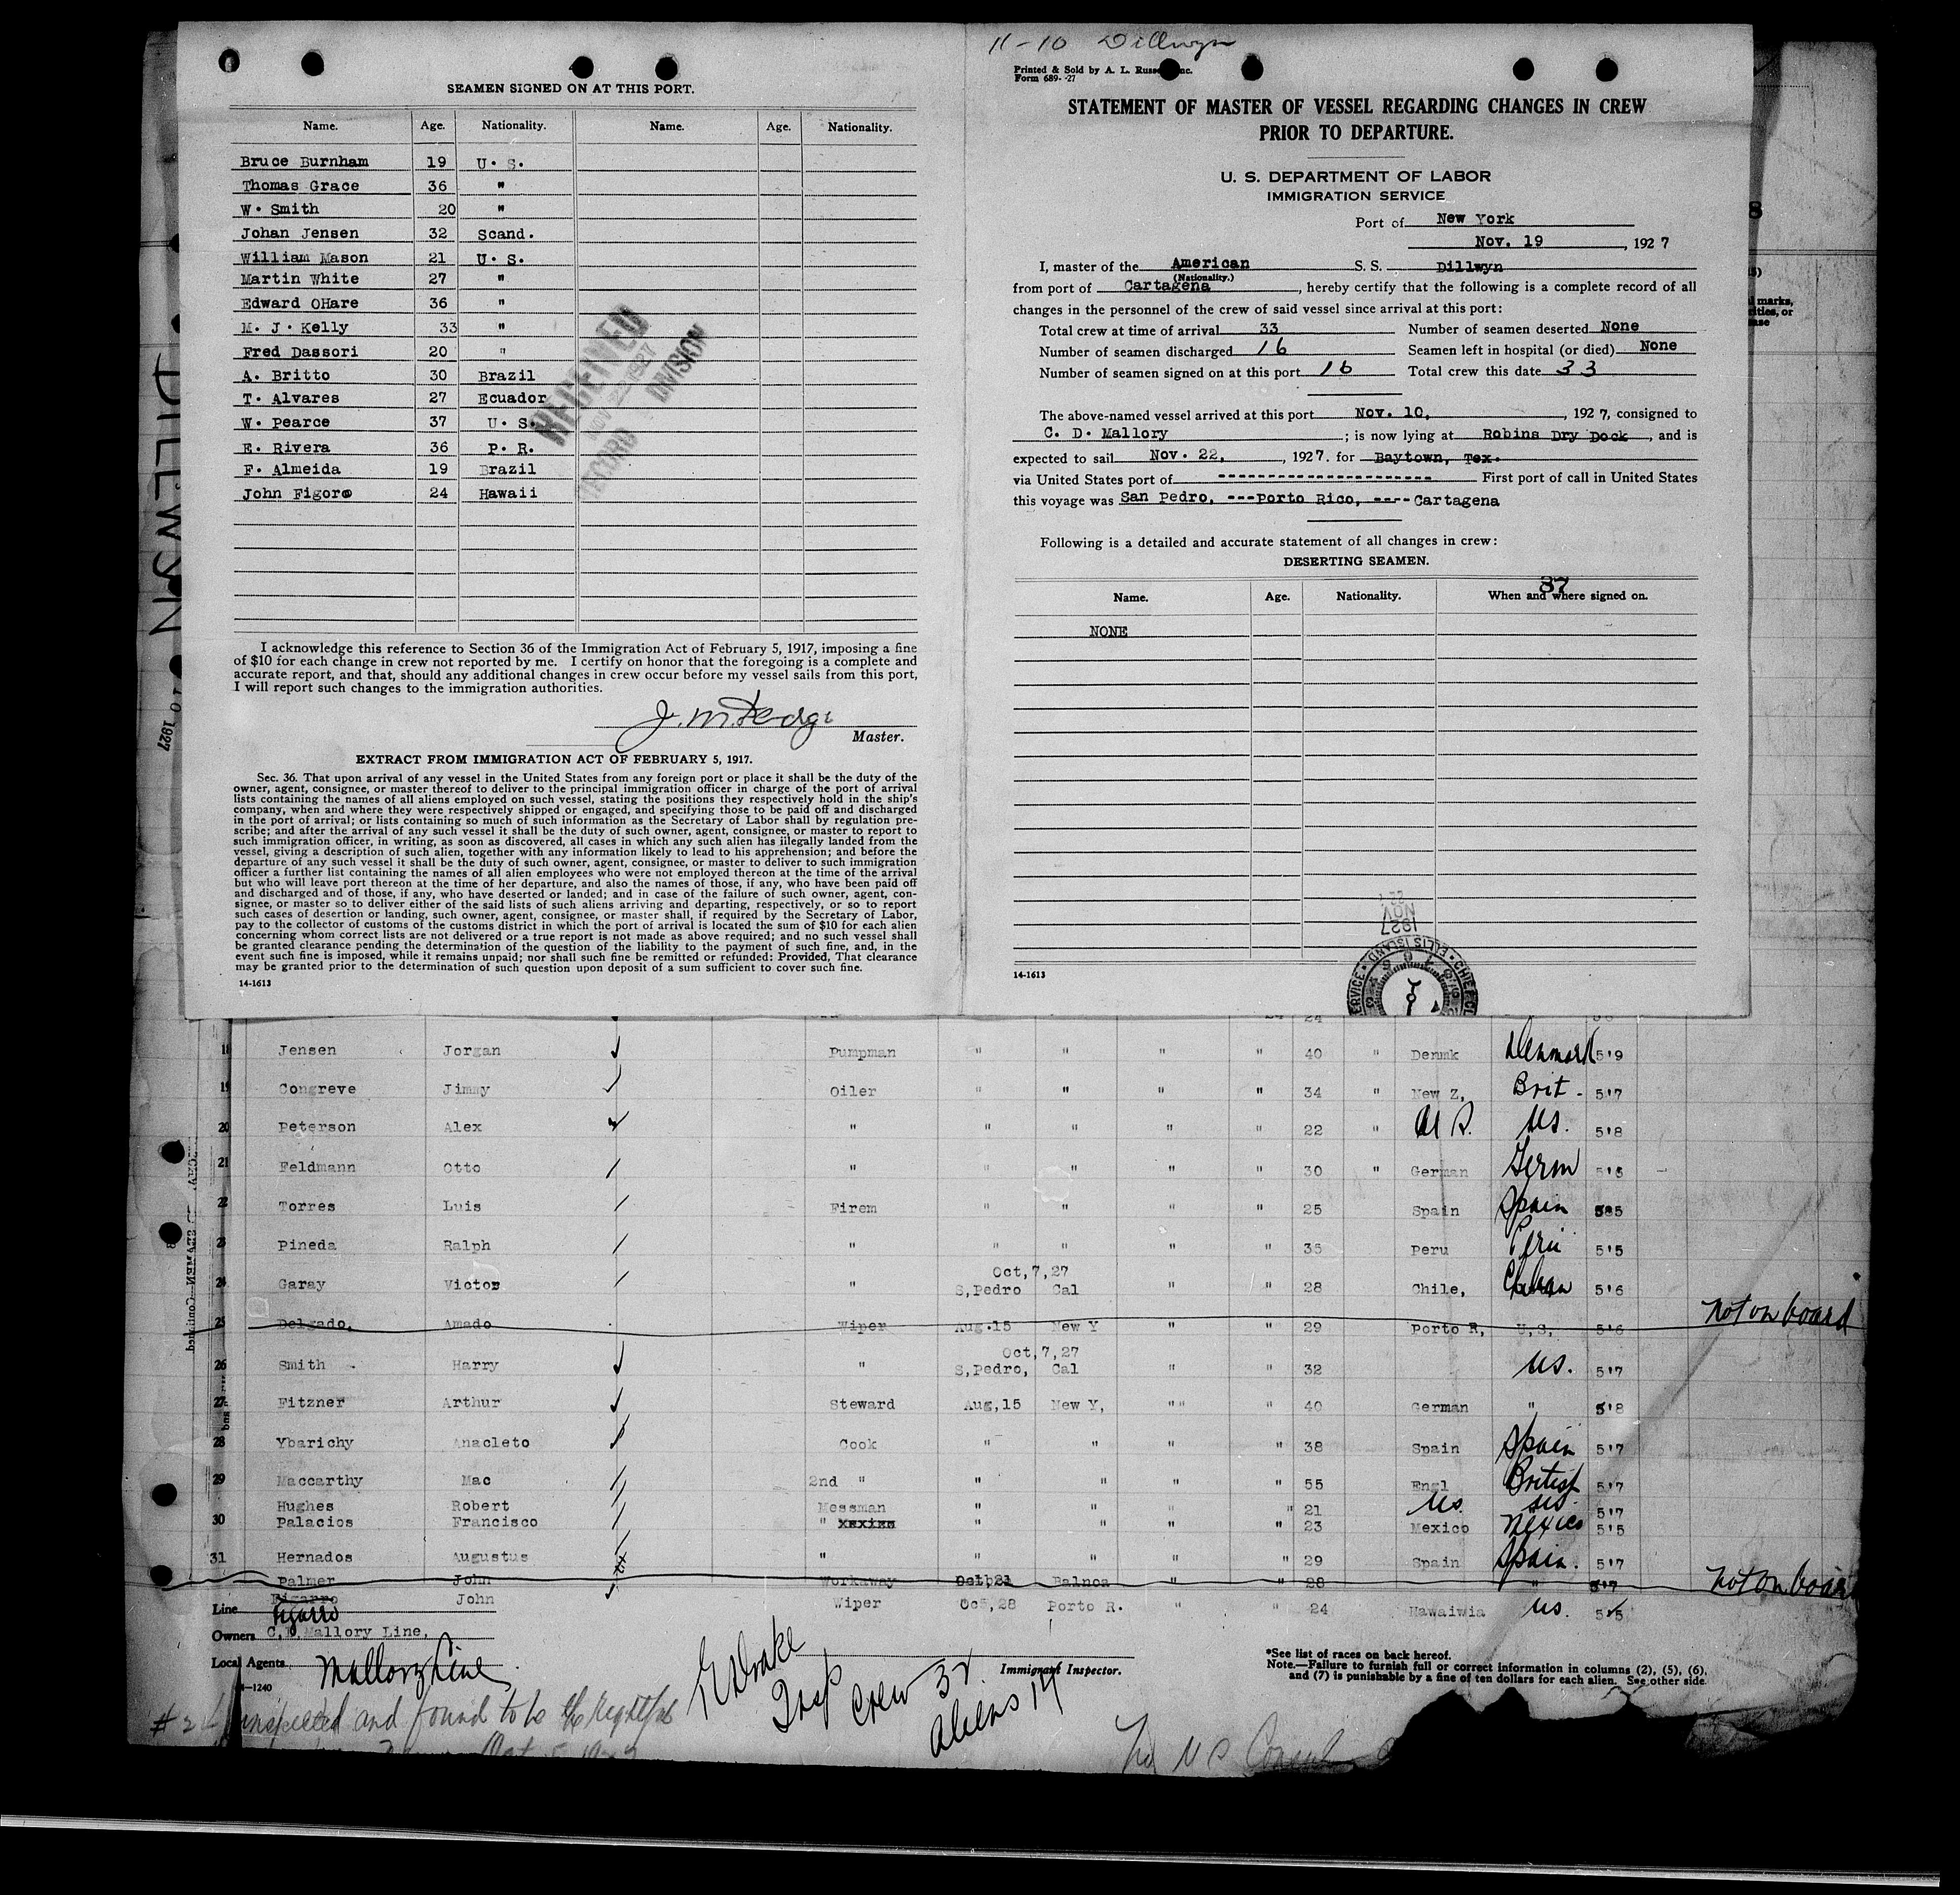 SEAMEN SIGNED ON AT THIS PORT.
Name. Age. Nationality. Name. Age. Nationality.
Bruce Burnham 19 U. S.
Thomas Grace 36 "
W. Smith 20 "
Johan Jensen 32 Scand.
William Mason 21 U. S.
Martin White 27 "
Edward OHare 36 "
M. J. Kelly 33 "
Fred Dassori 20 "
A. Britto 30 Brazil
T. Alvares 27 Ecuador
W. Pearce 37 U. S.
E. Rivera 36 P. R.
F. Almeida 19 Brazil
John Figoro 24 Hawaii
RECEIVED
NOV 22 1927
RECORD DIVISION
I acknowledge this reference to Section 36 of the Immigration Act of February 5, 1917, imposing a fine
of $10 for each change in crew not reported by me. I certify on honor that the foregoing is a complete and
accurate report, and that, should any additional changes in crew occur before my vessel sails from this port,
I will report such changes to the immigration authorities.
Master.
EXTRACT FROM IMMIGRATION ACT OF FEBRUARY 5, 1917.
Sec. 36. That upon arrival of any vessel in the United States from any foreign port or place it shall be the duty of the
owner, agent, consignee, or master thereof to deliver to the principal immigration officer in charge of the port of arrival
lists containing the names of all aliens employed on such vessel, stating the positions they respectively hold in the ship's
company, when and where they were respectively shipped or engaged, and specifying those to be paid off and discharged
in the port of arrival; or lists containing so much of such information as the Secretary of Labor shall by regulation pre-
scribe; and after the arrival of any such vessel it shall be the duty of such owner, agent, consignee, or master to report to
such immigration officer, in writing, as soon as discovered, all cases in which any such alien has illegally landed from the
vessel, giving a description of such alien, together with any information likely to lead to his apprehension; and before the
departure of any such vessel it shall be the duty of such owner, agent, consignee, or master to deliver to such immigration
officer a further list containing the names of all alien employees who were not employed thereon at the time of the arrival
but who will leave port thereon at the time of her departure, and also the names of those, if any, who have been paid off
and discharged and of those, if any, who have deserted or landed; and in case of the failure of such owner, agent, con-
signee, or master so to deliver either of the said lists of such aliens arriving and departing, respectively, or so to report
such cases of desertion or landing, such owner, agent, consignee, or master shall, if required by the Secretary of Labor,
pay to the collector of customs of the customs district in which the port of arrival is located the sum of $10 for each alien
concerning whom correct lists are not delivered or a true report is not made as above required; and no such vessel shall
be granted clearance pending the determination of the question of the liability to the payment of such fine, and, in the
event such fine is imposed, while it remains unpaid; nor shall such fine be remitted or refunded: Provided, That clearance
may be granted prior to the determination of such question upon deposit of a sum sufficient to cover such fine.
14-1613
11-10 Dillwyn
Printed & Sold by A. L. Russ nc.
Form 689- -27
STATEMENT OF MASTER OF VESSEL REGARDING CHANGES IN CREW
PRIOR TO DEPARTURE.
U. S. DEPARTMENT OF LABOR
IMMIGRATION SERVICE
Port of New York
Nov. 19, 1927
I, master of the American S. S. Dillwyn
(Nationality.)
from port of Cartagena, hereby certify that the following is a complete record of all
changes in the personnel of the crew of said vessel since arrival at this port:
Total crew at time of arrival 33 Number of seamen deserted None
Number of seamen discharged 16 Seamen left in hospital (or died) None
Number of seamen signed on at this port 16 Total crew this date 33
The above-named vessel arrived at this port Nov. 10, , 1927, consigned to
C. D. Mallory ; is now lying at Robins Dry Dock, and is
expected to sail Nov. 22, , 1927. for Baytown, Tex.
via United States port of -------------------- First port of call in United States
this voyage was San Pedro, ---Porto Rico, ----Cartagena
Following is a detailed and accurate statement of all changes in crew:
DESERTING SEAMEN.
37
Name. Age. Nationality. When and where signed on.
NONE
14-1613
1927
NOV
22
ELLIS ISLAND
18 Jensen Jorgan Pumpman " " " " 40 " Denmk Denmark 5'9
19 Congreve Jimmy Oiler " " " " 34 " New Z, Brit. 5'7
20 Peterson Alex " " " " " 22 " U S. US. 5'8
21 Feldmann Otto " " " " " 30 " German Germ
22 Torres Luis Firem " " " " 25 Spain Spain
23 Pineda Ralph " " " " " 35 Peru Peru 5'5
Oct,7,27
24 Garay Victor " S,Pedro Cal " " 28 Chile, 5'6
25 Delgado, Amado Wiper Aug.15 New Y " " 29 Porto R, U,S, 5'6 not on board
Oct,7,27
26 Smith Harry " S,Pedro, Cal " " 32 US. 5'7
27 Fitzner Arthur Steward Aug,15 New Y, "" " 40 German " 5'8
28 Ybarichy Anacleto Cook " " " " 38 Spain Spain 5'7
29 Maccarthy Mac 2nd " " " " " 55 Engl British 5'7
Hughes Robert Messman " " " " 21 US. US. 5'7
30 Palacios Francisco " " " " " 23 Mexico Mexico 5'5
31 Hernados Augustus " " " " " 29 Spain Spain. 5'7
Palmer John Workaway Balboa " " 28 " 5'7 not on board
Figarro John Wiper Oct,28 Porto R. " " 24 Hawaiwia US. 5'5
Line Figarro
Owners C,D,Mallory Line,
Local Agents Mallory Line
Immigrant Inspector.
Drake
Insp
Crew 32
aliens 14
*See list of races on back hereof.
Note.—Failure to furnish full or correct information in columns (2), (5), (6),
and (7) is punishable by a fine of ten dollars for each alien. See other side.
14-1240
inspected and found to be the rightful
DILLWYN
1927